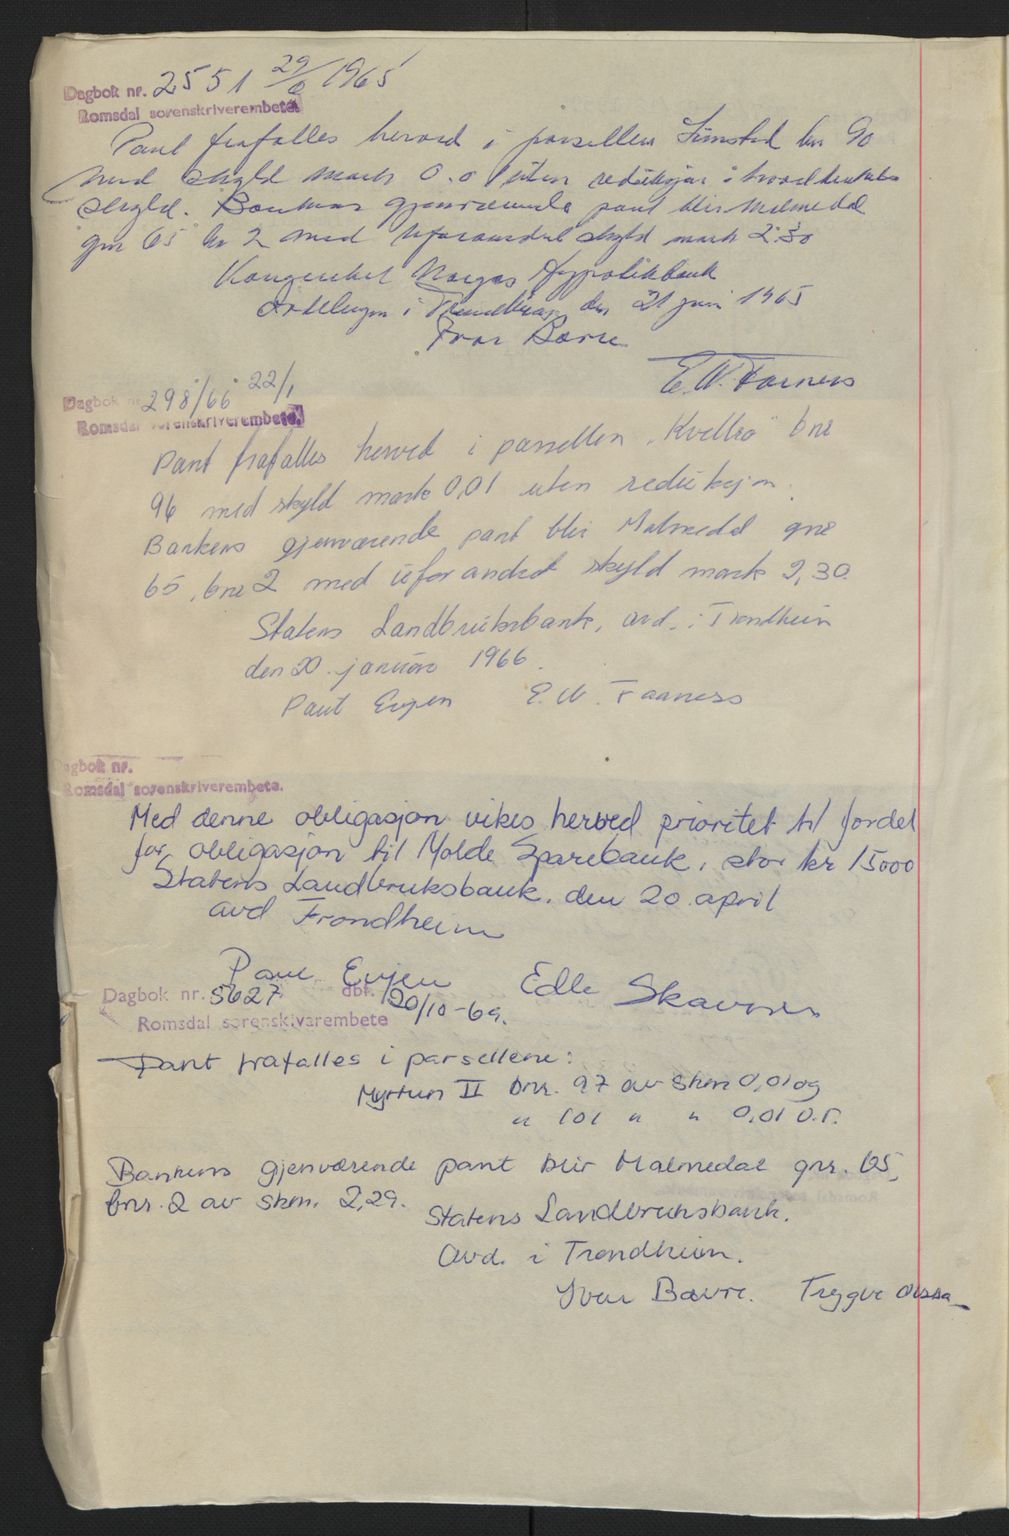 Dagbok nr. 2551 29/6 1965
Romsdal sorenskriverembete
Pant frafalles herved i parsellen bnr 90
med skyld mark 0.01 uten reduksjon i hovedbrukets
skyld. Bankens gjenværende pant blir Malmedal
gnr 65 bnr 2 med uforandret skyld mark 2.30
Kongeriket Norges Hypotekbank
Avdelingen i Trondheim den 21 juni 1965
Ivar Bavre
E. W. Faarness
Dagbok nr. 298/66 22/1
Romsdal sorenskriverembete.
Pant frafalles herved i parsellen "Kvellro" bnr
96 med skyld mark 0,01 uten reduksjon.
Bankens gjenværende pant blir Malmedal gnr
65, bnr 2 med uforandret skyld mark 2,30.
Statens Landbruksbank, avd. i Trondheim
den 20. januar 1966.
Paul Evjen E. W. Faarness
Dagbok nr.
Romsdal sorenskriverembete.
Med denne obligasjon vikes herved prioritet til fordel
for obligasjon til Molde Sparebank, stor kr 15000
Statens Landbruksbank, den 20. april
avd Trondheim
Paul Evjen Edle
Dagbok nr. 5627 dbf. 20/10-69.
Romsdal sorenskrivarembete
Pant frafalles i parsellene:
Myrtun II bnr. 97 av skm 0,01 og
" 101 " " 0,01 u.r.
Bankens gjenværende pant blir Malmedal gnr. 65,
bnr. 2 av skm. 2,29.
Statens Landbruksbank.
Avd. i Trondheim.
Ivar Bavre. Trygve